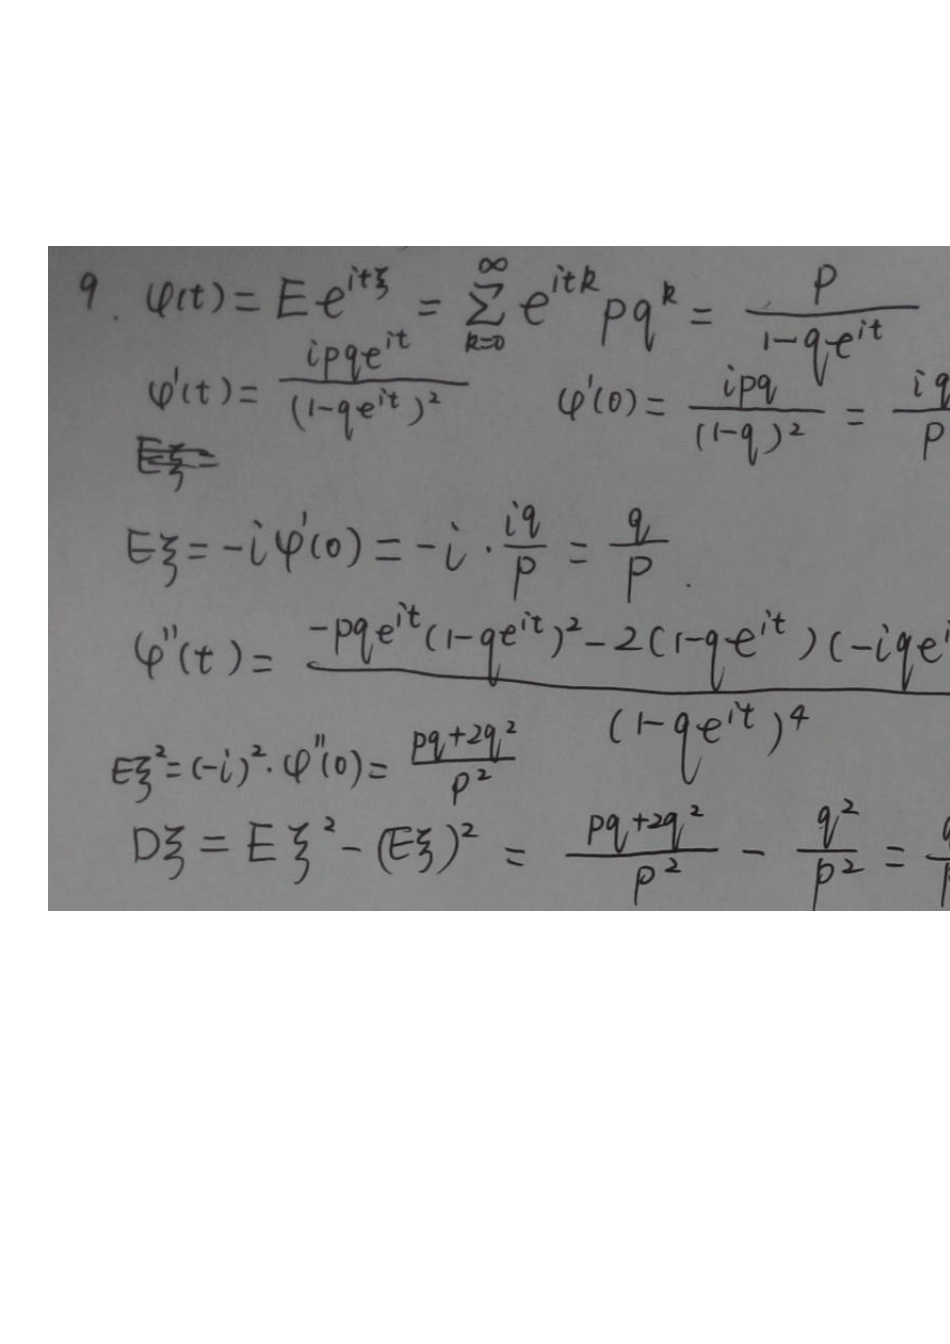 9. φ(t) = E e^{itξ} = \sum_{k=0}^{∞} e^{itk} pq^k = \frac{p}{1-qe^{it}}
φ'(t) = \frac{ipqe^{it}}{(1-qe^{it})^2} φ'(0) = \frac{ipq}{(1-q)^2} = \frac{iq}{p}
Eξ =
Eξ = -iφ'(0) = -i · \frac{iq}{p} = \frac{q}{p}.
φ''(t) = \frac{-pqe^{it}(1-qe^{it})^2 - 2(1-qe^{it})(-iqe^{i}}{(1-qe^{it})^4}
Eξ^2 = (-i)^2 · φ''(0) = \frac{pq+2q^2}{p^2}
Dξ = Eξ^2 - (Eξ)^2 = \frac{pq+2q^2}{p^2} - \frac{q^2}{p^2} =